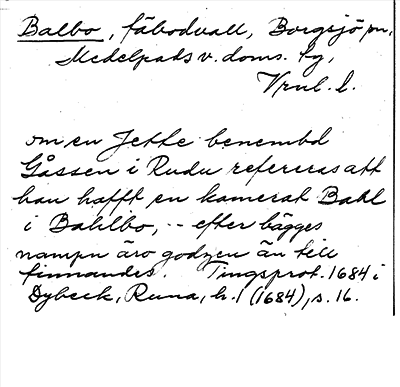 Balbo, fäbodvall, Borgsjö sn,
Medelpads v. doms. bg,
Vrnl. l.
om en Jette benembd
Gåssen i Rudu refereras att
han hafft en kamerat Bahl
i Bahlbo, -- efter bägges
nampn äro godzen än till
finnandes. Tingsprot. 1684 i
Dybeck, Runa, h. 1 (1684), s. 16.